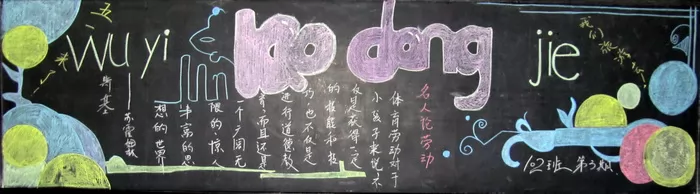 Wu yi lao dong jie
五一来
我们
名人论劳动
体育劳动对于
小孩子来说不
仅是获得一定
的技能和技
巧也不仅是
进行道德教
育而且还是
一个广阔无
限的惊人
丰富的思
想的世界
斯基
122班第3期